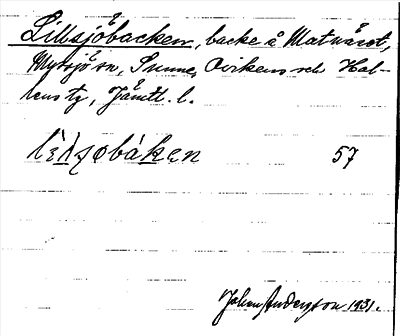 Lillsjöbacken, backe å Matnäset,
Myssjö sn, Sunne, Ovikens och Hal-
lens tg, Jämtl. l.
lìlʃøbàken 57
Johan Anderzson 1931.